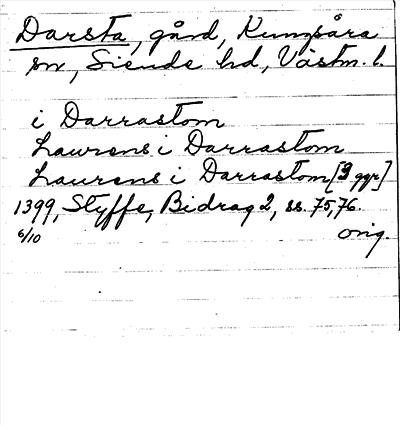 Darsta, gård, Kungsåra
sn, Siende hd, Västm. l.
i Darrastom
Laurens i Darrastom
Laurens i Darrastom [3 ggr]
1399, Styffe, Bidrag 2, ss. 75, 76.
6/10 orig.